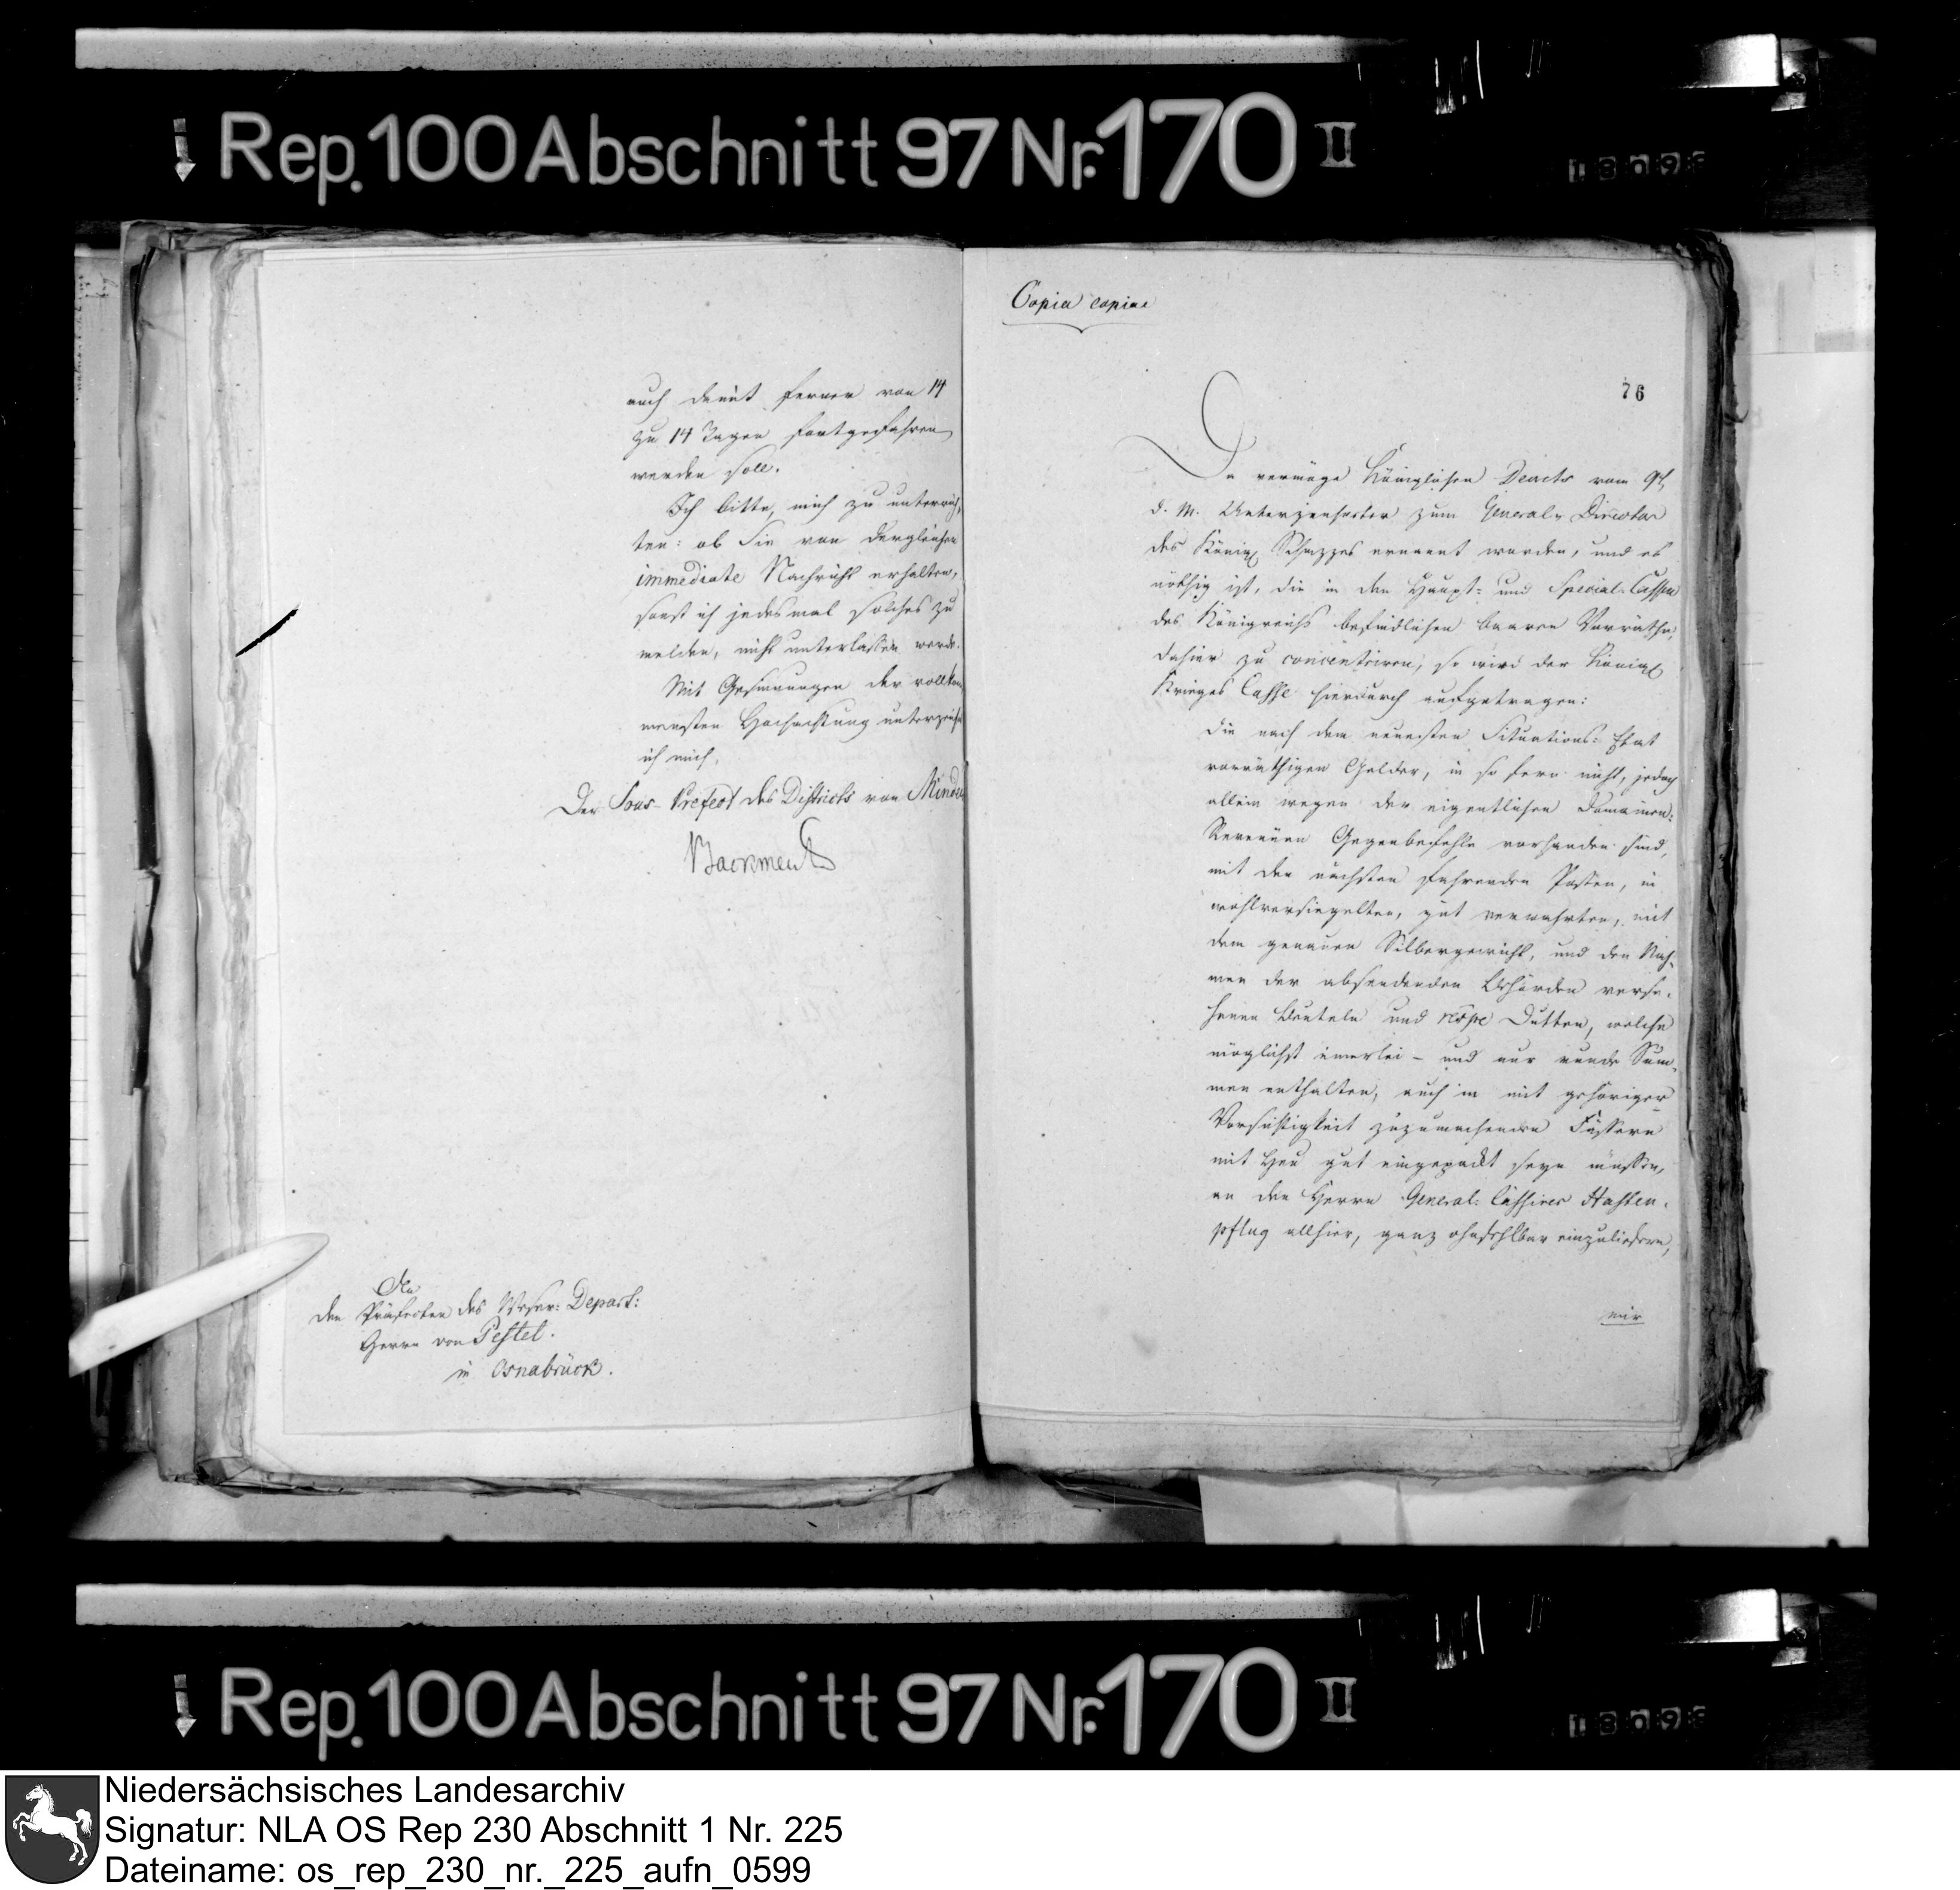 Rep. 100 Abschnitt 97 Nr. 170 II
auch damit ferner von 14
zu 14 Tagen fortgefahren
werden soll.
Ich bitte, mich zu unterrich-
ten: ob Sie von dergleichen
immediate Nachricht erhalten,
sonst ich jedesmal solches zu
melden, nicht unterlassen werde.
Mit Gesinnungen der vollkom
mensten Hochachtung unterzeichne
ich mich.
Der Sous-Prefect des Districts von Minden
An
den Präfecten des Weser: Depart:
Herrn von Pestel.
in Osnabrück.
Copia copiae
76
Da vermöge Königlichen Decrets vom 9t
d. M. Unterzeichneter zum General-Director
des Königl Schazzes ernannt worden, und es
nöthig ist, die in den Haupt- und Special-Cassen
des Königreichs befindlichen baaren Vorräthe,
dahier zu concentriren, so wird der Königl
Krieges Casse hierdurch aufgetragen:
die nach dem neuesten Situations-Etat
vorräthigen Gelder, in so fern nicht, jedoch
allein wegen der eigentlichen Domainen-
Revenüen Gegenbefehle vorhanden sind,
mit den nächsten fahrenden Posten, in
wohlversiegelten, gut verwahrten, mit
dem genauen Silbergewicht, und den Nah-
men der absendenden Behörden verse-
henen Beuteln und resp: Dutten, welche
möglichst einerlei - und nur runde Sum-
men enthalten, auch in mit gehöriger
Vorsichtigkeit zuzumachenden Fässern
mit Heu gut eingepackt seyn müssen,
an den Herrn General-Cassirer Hassen-
pflug allhier, ganz ohnfehlbar einzuliefern,
mir
Rep. 100 Abschnitt 97 Nr. 170 II
Niedersächsisches Landesarchiv
Signatur: NLA OS Rep 230 Abschnitt 1 Nr. 225
Dateiname: os_rep_230_nr._225_aufn_0599